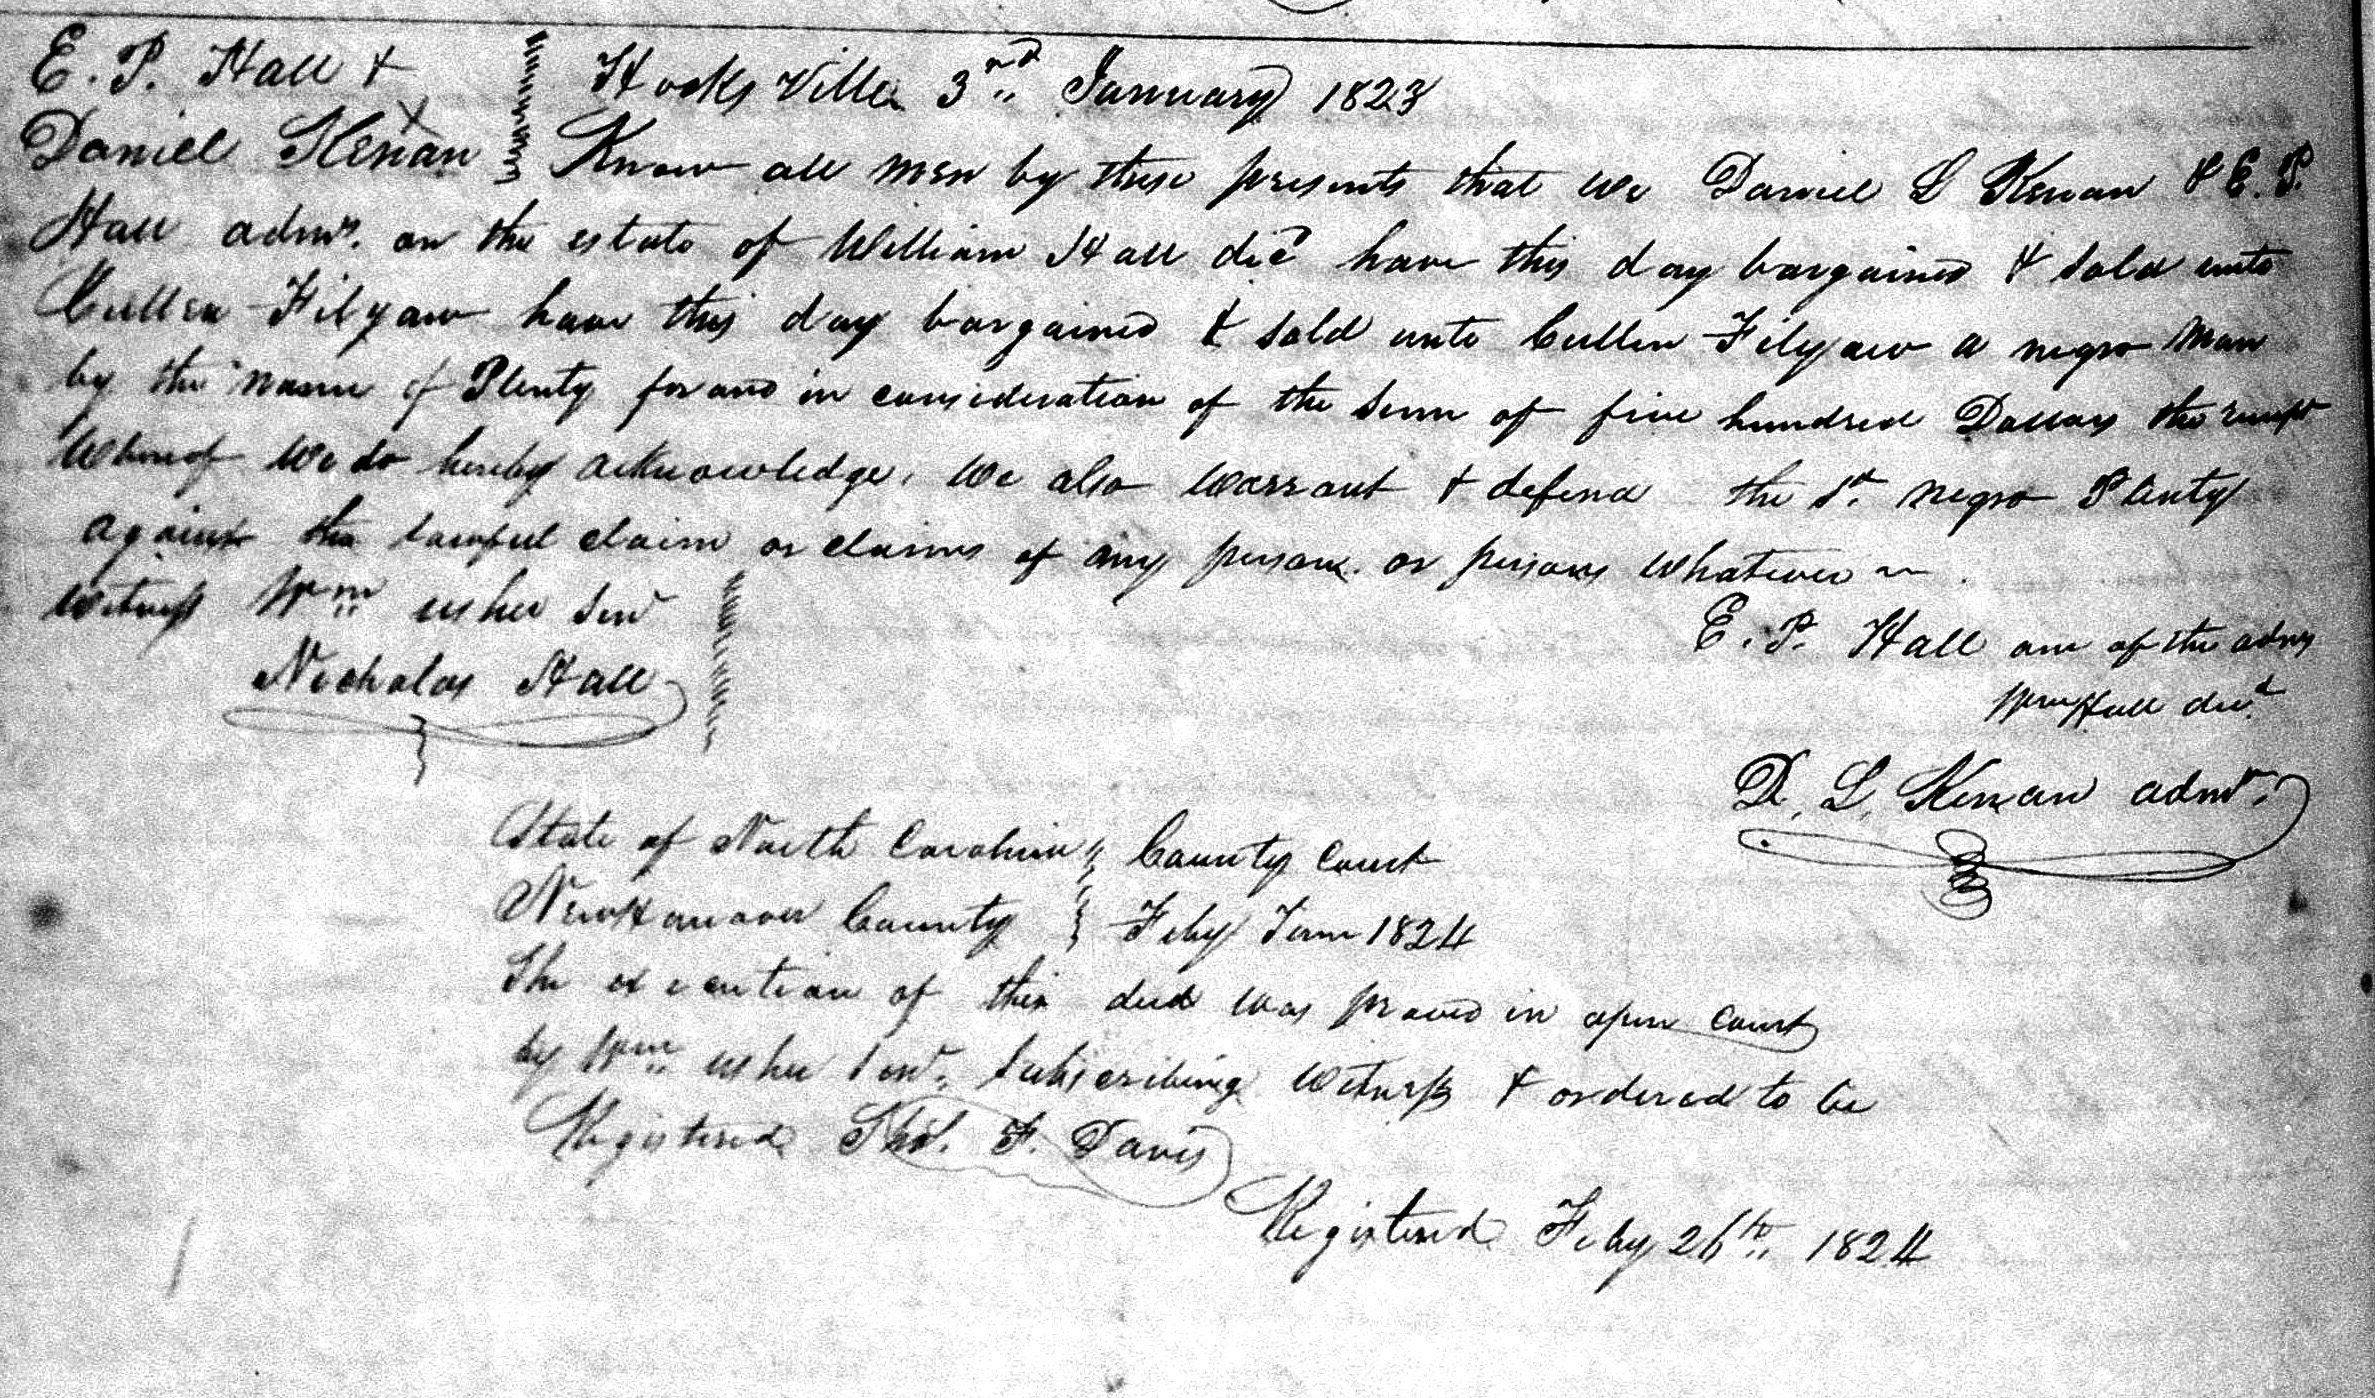 E. P. Hall &
Hocks Ville 3nd January 1823
Daniel Kenan
Know all men by these presents that we Daniel L Kenan & E. P.
Hall admrs. on the estate of William Hall decd have this day bargained & sold unto
Cullen Filyaw have this day bargained & sold unto Cullen Filyaw a negro man
by the name of Plenty for and in consideration of the sum of five hundred Dollars the receipt
Whereof We do hereby acknowledge. We also warrant & defend the sd. negro Plenty
against the lawful claim or claims of any person or persons whatever
Witness Wm usher Senr
Nicholas Hall
E. P. Hall one of the admrs
Wm Hall decd
D. L. Kenan admr.
State of North Carolina County Court
New Hanover County Feby Term 1824
The execution of this deed was proved in open court
by Wm usher Senr. Subscribing Witness & ordered to be
Registered Thos. F. Davis
Registered Feby 26th. 1824